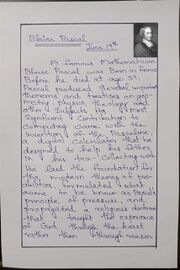 Blaise Pascal
June 19th
A famous Mathematician
Blaise Pascal was Born in France
Before he died at age 39,
Pascal produced several important
theorems and treatises on geo-
metry, physics, theology and
other subjects. His most
significant contribution to
computing came with the
invention of the Pascaline,
a digital calculator that he
designed to help his father
in his tax-collecting work
He laid the foundation for
the modern theory of pro-
babilities, formulated what
came to be known as Pascal's
principle of pressure, and
propagated a religious doctrine
that taught the experience
of God through the heart
rather than through reason